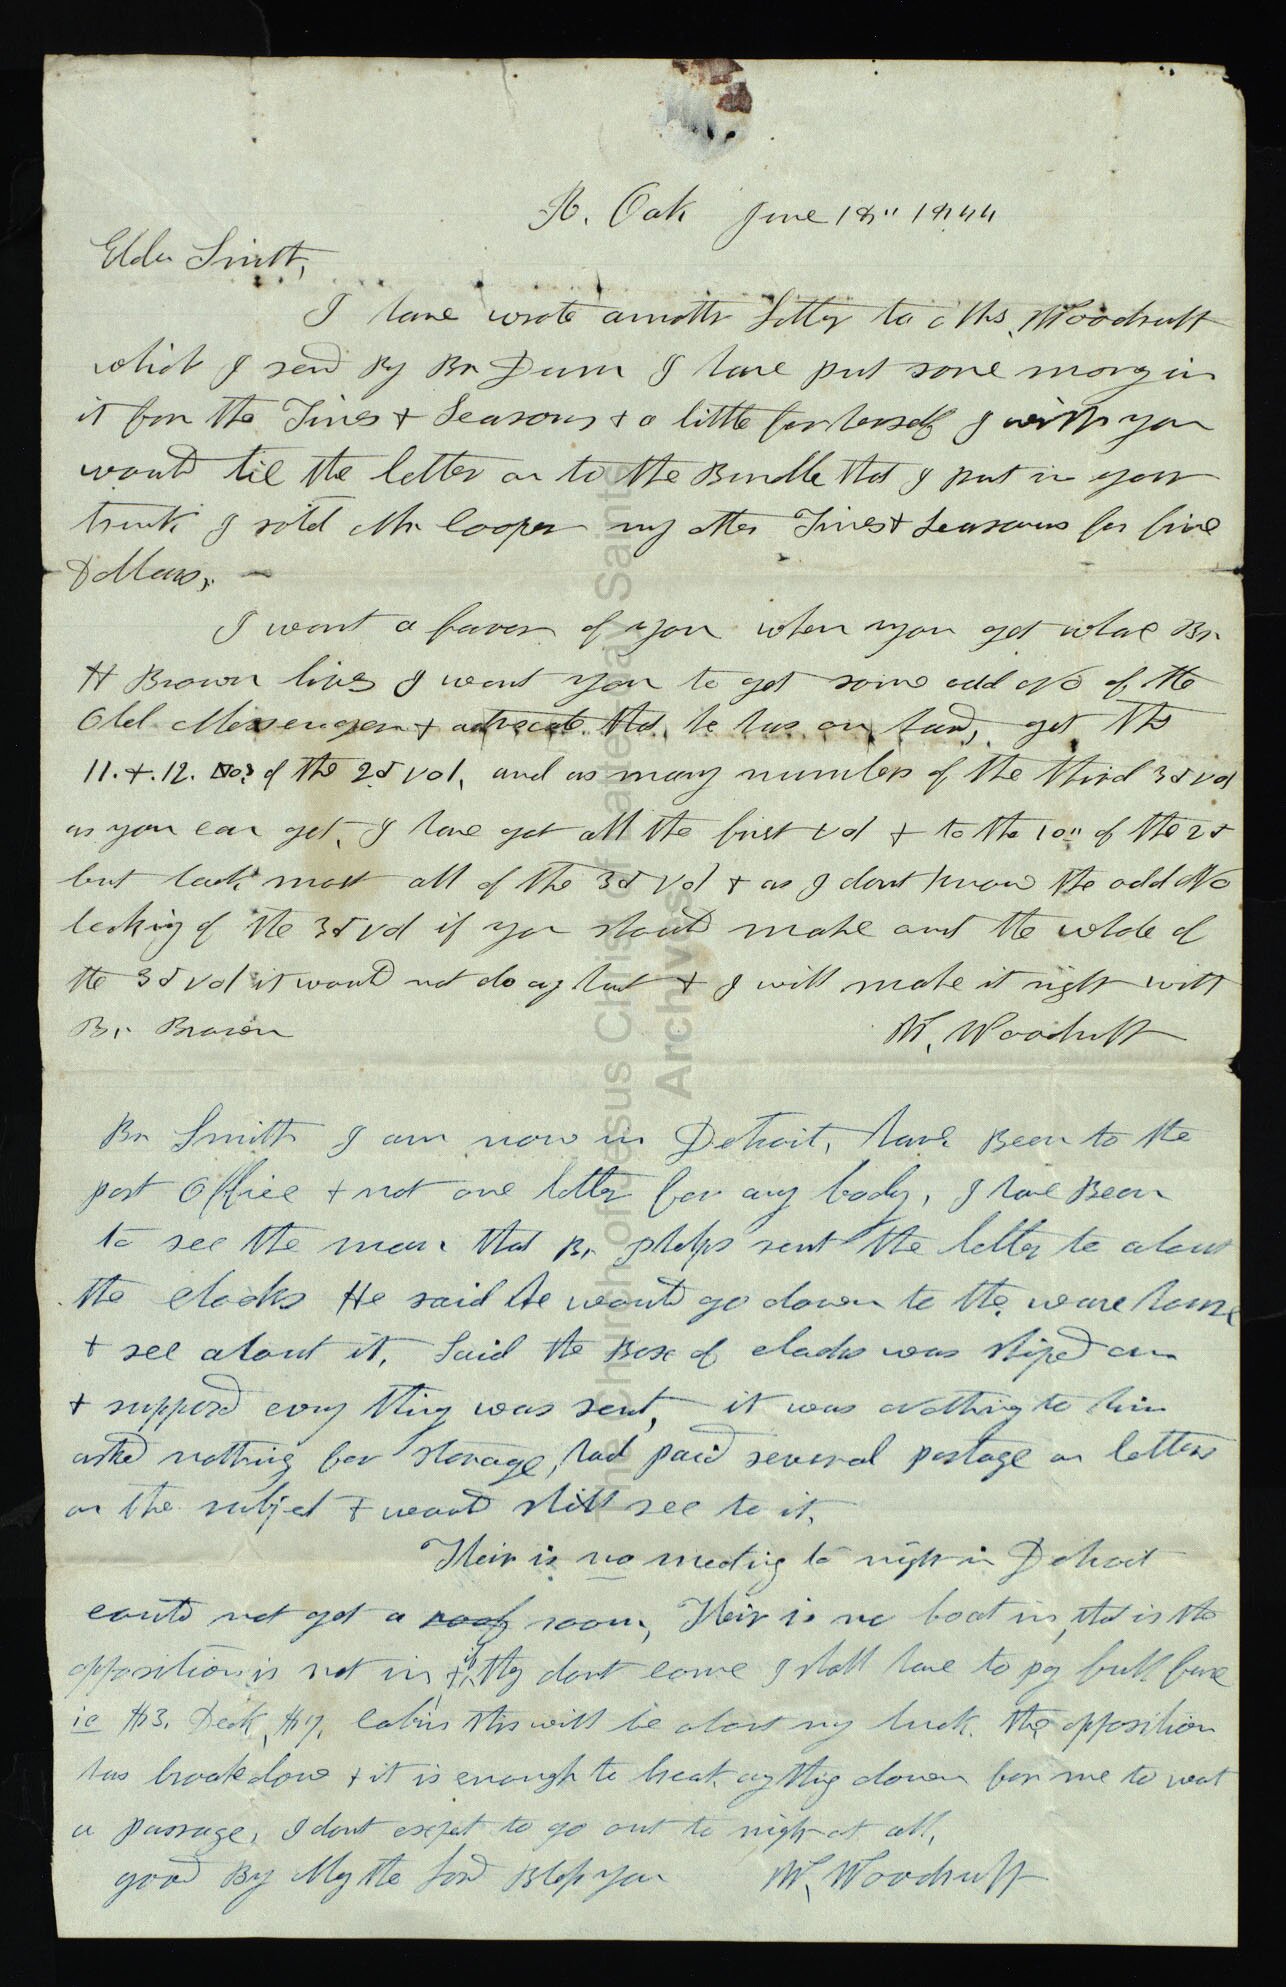 R. Oak June 18" 1844
Elder Smith,
I have wrote another Letter to Mrs. Woodruff
which I send By Br Dunn I have put some money in
it for the Times & Seasons & a little for herself I wish you
would tie the letter on to the Bundle that I put in your
trunk I sold Mr Cooper my other Times & Seasons for five
Dollars,
I want a favor of you when you get whare Br
H Brown lives I want you to get some odd No of the
Old Messenger & advocate that he has on hand, get the
11. & 12. No? of the 2d vol, and as many numbers of the third 3d vol
as you can get, I have got all the first vol & to the 10" of the 2d
but lack most all of the 3d Vol & as I dont know the odd No
lacking of the 3d vol if you should make out the whole of
the 3d vol it would not do any hurt & I will make it right with
Br Brown W. Woodruff
Br Smith I am now in Detroit, have Been to the
post Office & not one letter for any body, I have Been
to see the man that Br phelps sent the letter to about
the clocks He said he would go down to the ware house
& see about it, Said the Box of clocks was shiped on
& supposd every thing was sent, it was nothing to him
asked nothing for storage, had paid several postage on letters
on the subject & would still see to it,
Their is no meeting to night in Detroit
could not get a room, Their is no boat in, that is the
opposition is not in & if they dont come I shall have to pay full fare
ie $3. Deck, $7. cabin this will be about my luck. the opposition
has broake down & it is enough to break any thing down for me to want
a passage, I dont expect to go out to night at all,
good By May the Lord Bless you W. Woodruff
The Church of Jesus Christ of Latter-day Saints
Archives